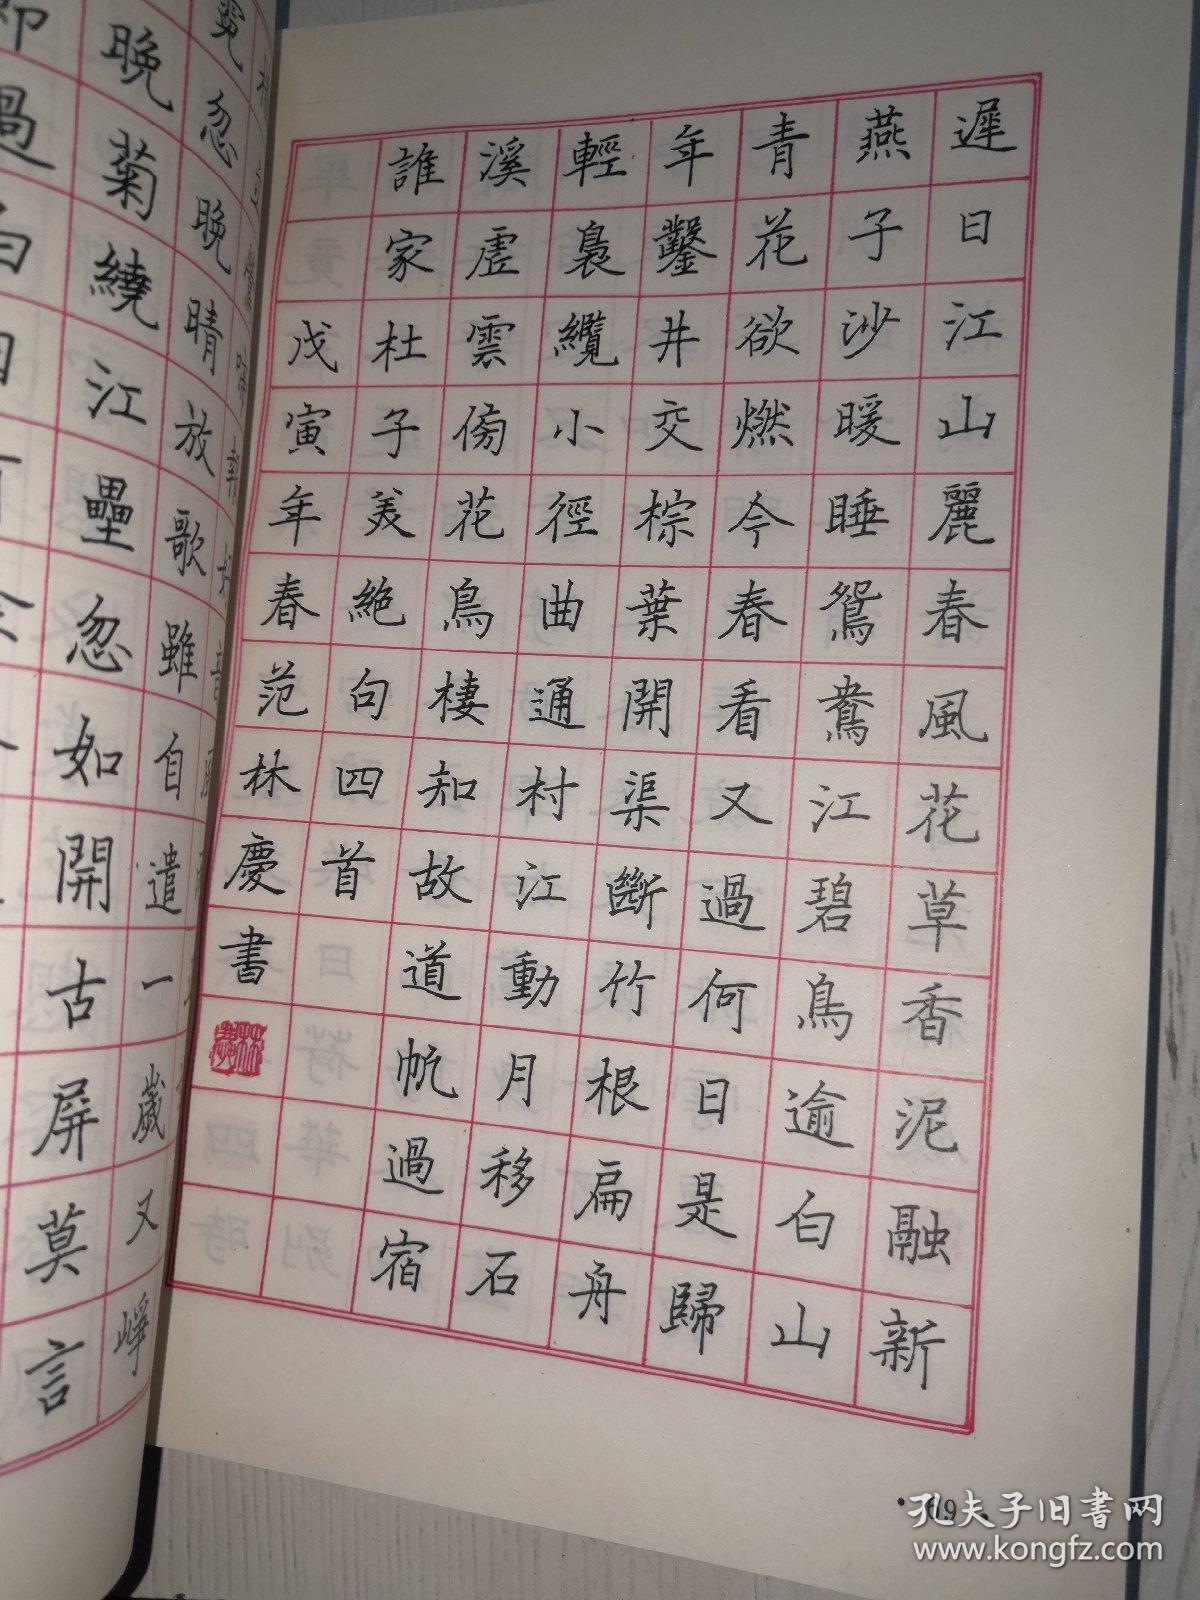 忽晚晴放歌雖自遣一歲又崢
晚菊繞江壘忽如開古屏莫言
遲日江山麗春風花草香泥融新
燕子沙暖睡鴛鴦江碧鳥逾白山
青花欲燃今春看又過何日是歸
年鑿井交棕葉開渠斷竹根扁舟
輕裊纜小徑曲通村江動月移石
溪虛雲傍花鳥棲知故道帆過宿
誰家杜子美絕句四首
戊寅年春范林慶書
69
孔夫子旧书网
www.kongfz.com